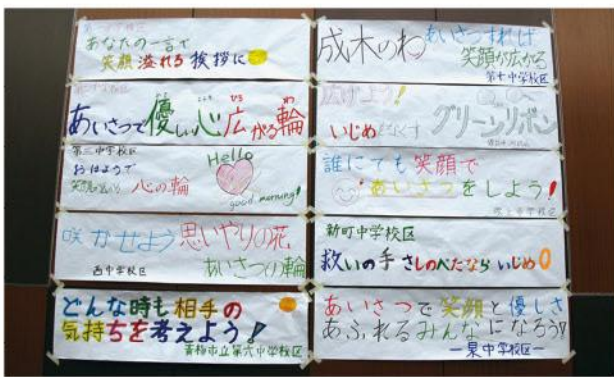 あなたの一言で
笑顔溢れる挨拶に
あいさつで優しい心広がる輪
第三中学校区
おはようで
心の輪
Hello
good morning!
咲かせよう思いやりの花
西中学校区
あいさつの輪
どんな時も相手の
気持ちを考えよう！
青梅市立第六中学校区
成木のわ
あいさつすれば
笑顔が広がる
第七中学校区
広げよう！
いじめをなくす
グリーンリボン
誰にでも笑顔で
あいさつをしよう！
新町中学校区
救いの手さしのべたならいじめ0
あいさつで笑顔と優しさ
あふれるみんなになろう!!
ー泉中学校区ー